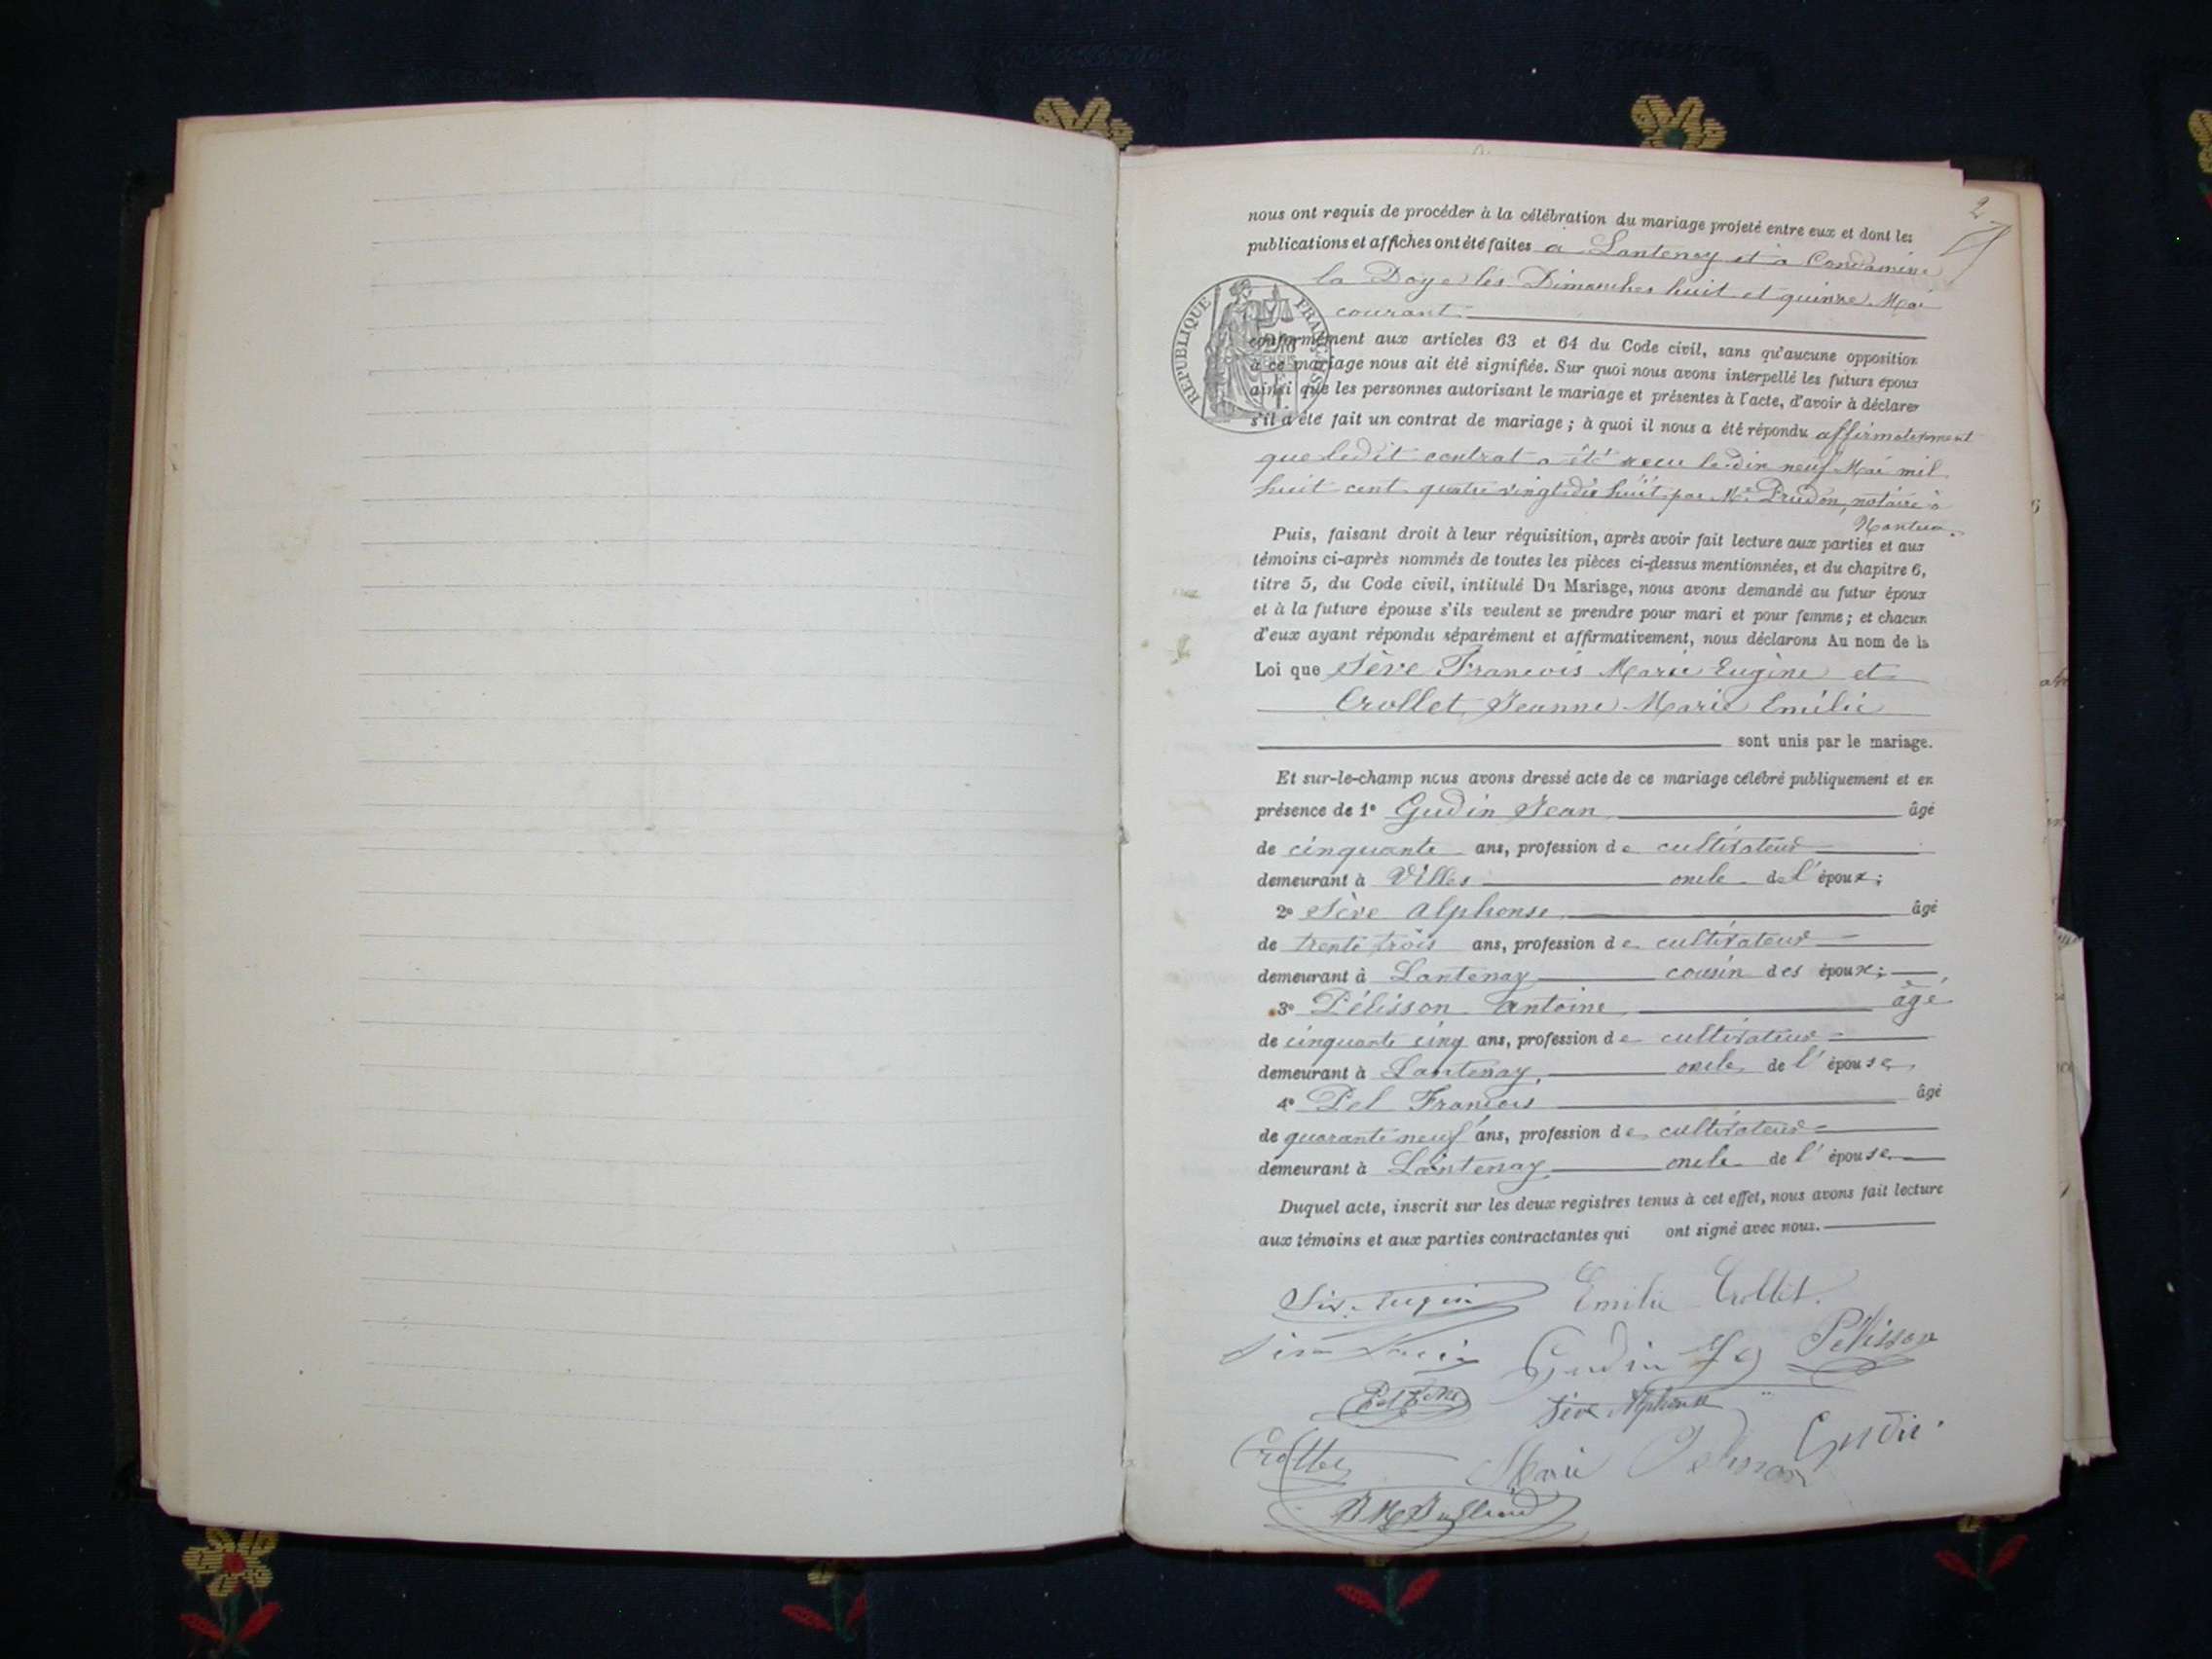 2
nous ont requis de procéder à la célébration du mariage projeté entre eux et dont les
publications et affiches ont été faites à Lantenay et à Condamine
la Doye les Dimanches huit et quinze Mai
courant
RÉPUBLIQUE FRANÇAISE
conformément aux articles 63 et 64 du Code civil, sans qu'aucune opposition
à ce mariage nous ait été signifiée. Sur quoi nous avons interpellé les futurs époux
ainsi que les personnes autorisant le mariage et présentes à l'acte, d'avoir à déclarer
s'il a été fait un contrat de mariage ; à quoi il nous a été répondu affirmativement
que ledit contrat a été reçu le dix neuf Mai mil
huit cent quatre vingt dix huit par Me Prudon, notaire à
Nantua.
Puis, faisant droit à leur réquisition, après avoir fait lecture aux parties et aux
témoins ci-après nommés de toutes les pièces ci-dessus mentionnées, et du chapitre 6,
titre 5, du Code civil, intitulé Du Mariage, nous avons demandé au futur époux
et à la future épouse s'ils veulent se prendre pour mari et pour femme ; et chacun
d'eux ayant répondu séparément et affirmativement, nous déclarons Au nom de la
Loi que Sève François Marie Eugène et
Crollet Jeanne Marie Emélie
sont unis par le mariage.
Et sur-le-champ nous avons dressé acte de ce mariage célébré publiquement et en
présence de 1° Gudin Jean âgé
de cinquante ans, profession de cultivateur
demeurant à Villes oncle de l'époux ;
2° Sève Alphonse âgé
de trente trois ans, profession de cultivateur
demeurant à Lantenay cousin des époux ;
3° Pélisson Antoine âgé
de cinquante cinq ans, profession de cultivateur
demeurant à Lantenay, oncle de l'épouse
4° Pel François âgé
de quarante neuf ans, profession de cultivateur
demeurant à Lantenay oncle de l'épouse
Duquel acte, inscrit sur les deux registres tenus à cet effet, nous avons fait lecture
aux témoins et aux parties contractantes qui ont signé avec nous.
Emélie Crollet
Gudin Pélisson
Sève Alphonse
Crollet Marie Pelisson Gudin